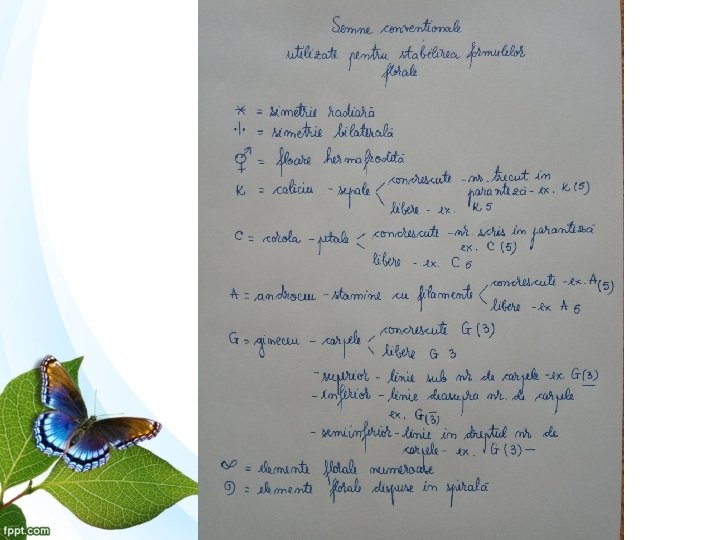 Semne convenționale
utilizate pentru stabilirea formulelor
florale
* = simetrie radiară
·|· = simetrie bilaterală
⚥ = floare hermafrodită
K = caliciu - sepale < concrescute - nr. trecut în
paranteză - ex. K (5)
libere - ex. K 5
C = corola - petale < concrescute - nr. scris în paranteză
ex. C (5)
libere - ex. C 5
A = androceu - stamine cu filamente < concrescute - ex. A(5)
libere - ex A 5
G = gineceu - carpele < concrescute G (3)
libere G 3
- superior - linie sub nr de carpele - ex. G(3)
- inferior - linie deasupra nr. de carpele
ex. G(3)
- semiinferior - linie în dreptul nr de
carpele - ex. G (3) —
∞ = elemente florale numeroase
@ = elemente florale dispuse în spirală
fppt.com